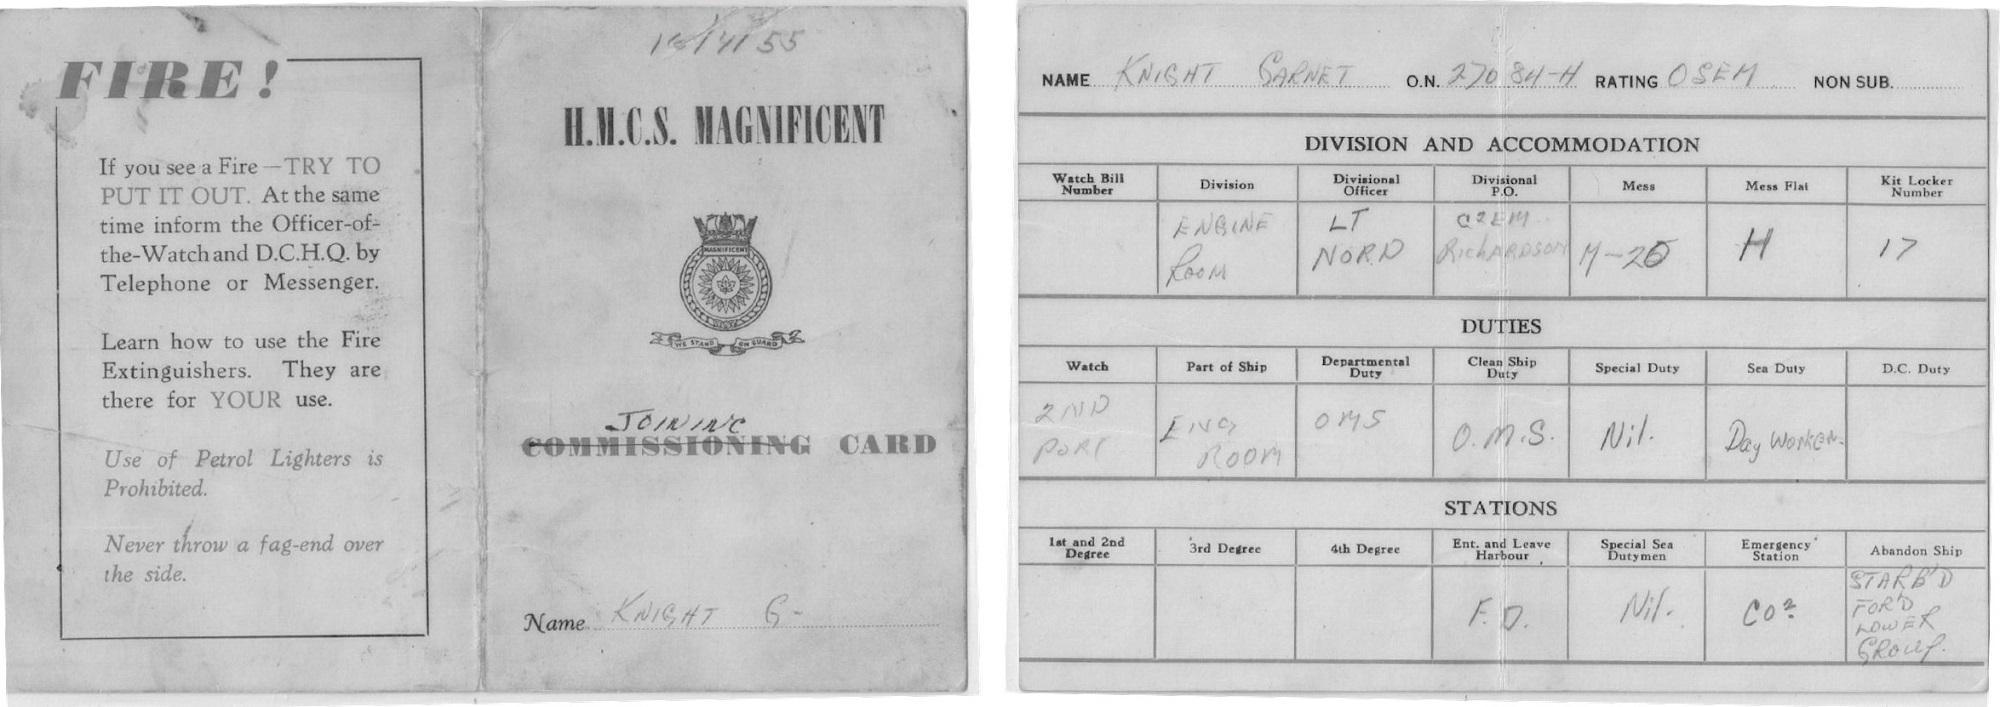 FIRE!
If you see a Fire — TRY TO
PUT IT OUT. At the same
time inform the Officer-of-
the-Watch and D.C.H.Q. by
Telephone or Messenger.
Learn how to use the Fire
Extinguishers. They are
there for YOUR use.
Use of Petrol Lighters is
Prohibited.
Never throw a fag-end over
the side.
H.M.C.S. MAGNIFICENT
MAGNIFICENT
WE STAND ON GUARD
JOINING
COMMISSIONING CARD
Name KNIGHT G-
NAME KNIGHT GARNET O.N. 27084-H RATING OSEM NON SUB.
DIVISION AND ACCOMMODATION
Watch Bill Number Division Divisional Officer Divisional P.O. Mess Mess Flat Kit Locker Number
ENGINE ROOM LT NORD C2EM RICHARDSON M-25 H 17
DUTIES
Watch Part of Ship Departmental Duty Clean Ship Duty Special Duty Sea Duty D.C. Duty
2ND PORT ENG ROOM OMS O.M.S. Nil. Day Worker
STATIONS
1st and 2nd Degree 3rd Degree 4th Degree Ent. and Leave Harbour Special Sea Dutymen Emergency Station Abandon Ship
F.D. Nil. CO2 STARB'D FOR'D LOWER GROUP.